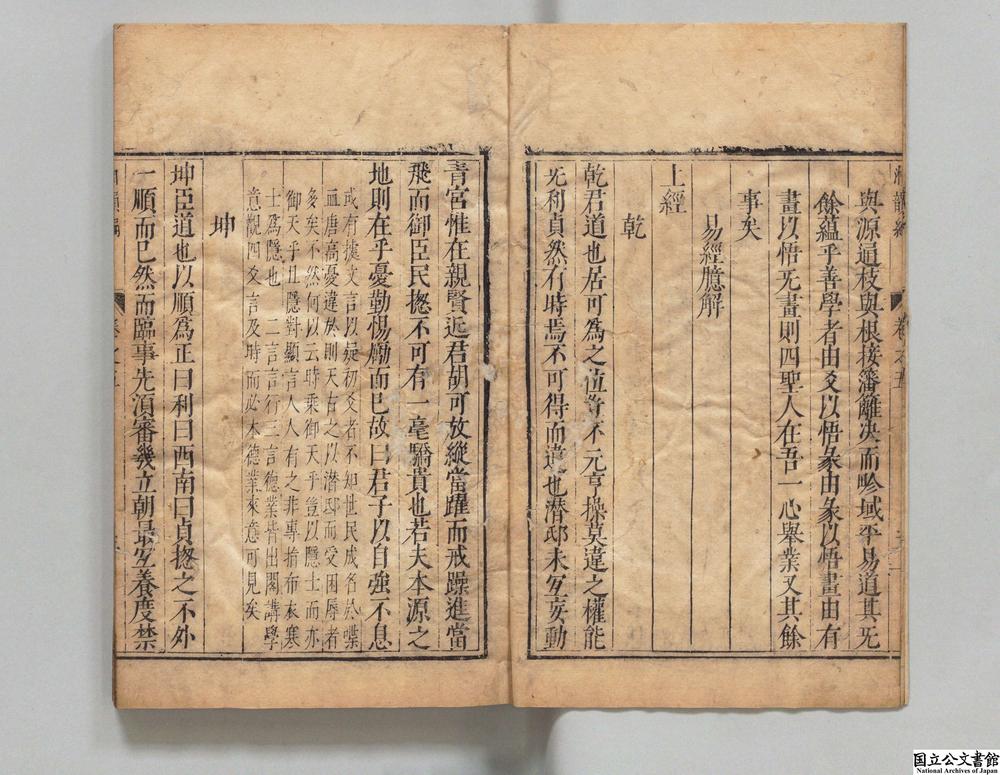 與源逼枝與根接籓籬决而畛域平易道其无
餘蘊乎善學者由爻以悟彖由彖以悟畫由有
畫以悟无畫則四聖人在吾一心舉業又其餘
事矣
易經臆解
上經
乾
乾君道也居可為之位胥不元亨操莫違之權能
无利貞然有時焉不可得而違也潜邸未宜妄動
青宮惟在親賢近君胡可放縱當躍而戒躁進當
飛而御臣民揔不可有一毫驕貴也若夫本源之
地則在乎憂勤惕勵而已故曰君子以自強不息
或有㨿文言以疑初爻者不知世民成名於喋
血唐高憂違於則天古之以潜邸而受困辱者
多矣不然何以云時乘御天乎豈以隱士而亦
御天乎且隱對顯言人人有之非專指布衣寒
士為隱也 二言言行三言德業皆出閣講學
意觀四爻言及時而必本德業來意可見矣
坤
坤臣道也以順為正曰利曰西南曰貞揔之不外
一順而已然而臨事先須審幾立朝最宜養度禁
卷之五
国立公文書館
National Archives of Japan